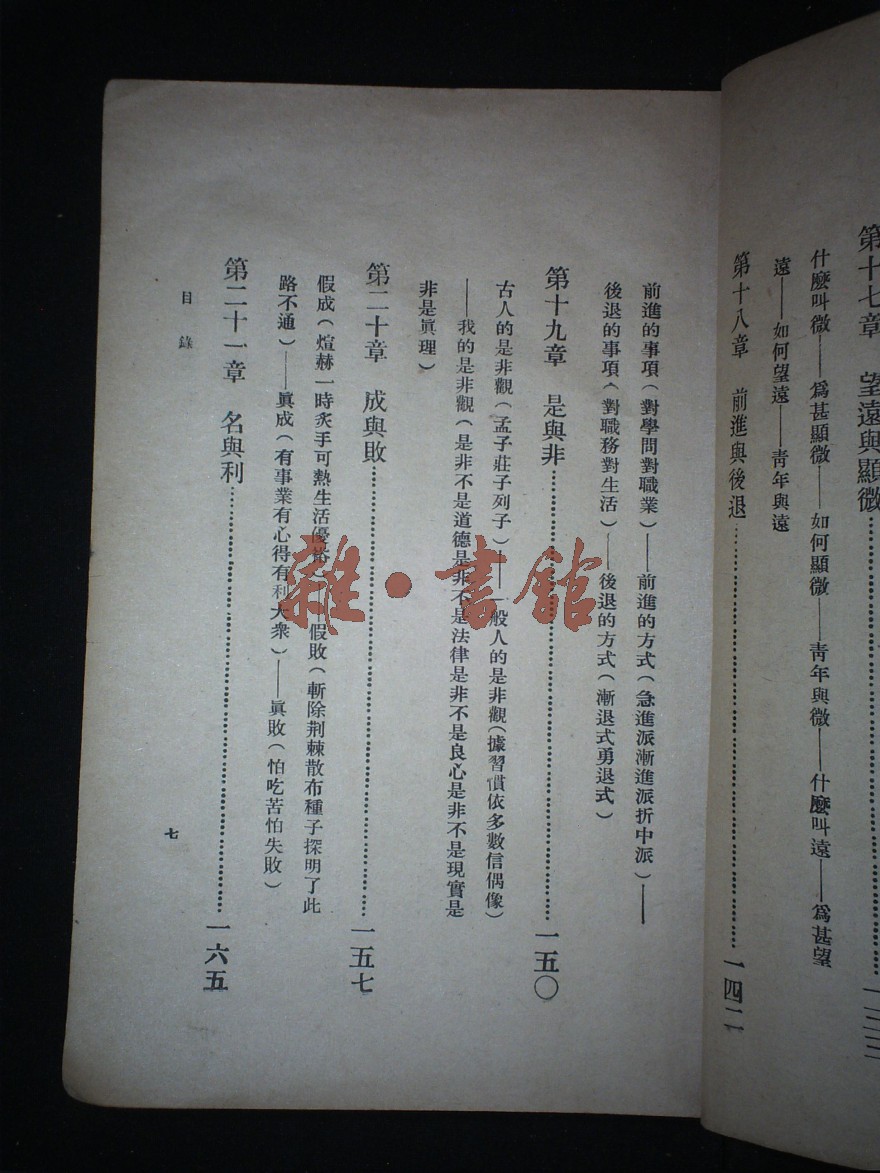 第十七章　望遠與顯微…………一三三
什麼叫微——爲甚顯微——如何顯微——青年與微——什麼叫遠——爲甚望
遠——如何望遠——青年與遠
第十八章　前進與後退…………一四二
前進的事項(對學問對職業)——前進的方式(急進派漸進派折中派)——
後退的事項(對職務對生活)——後退的方式(漸退式勇退式)
第十九章　是與非…………一五〇
古人的是非觀(孟子莊子列子)——一般人的是非觀(據習慣依多數信偶像)
——我的是非觀(是非不是道德是非不是法律是非不是良心是非不是現實是
非是眞理)
第二十章　成與敗…………一五七
假成(煊赫一時炙手可熱生活優裕)——假敗(斬除荆棘散布種子探明了此
路不通)——眞成(有事業有心得有利大衆)——眞敗(怕吃苦怕失敗)
第二十一章　名與利…………一六五
目錄
七
雜·書館